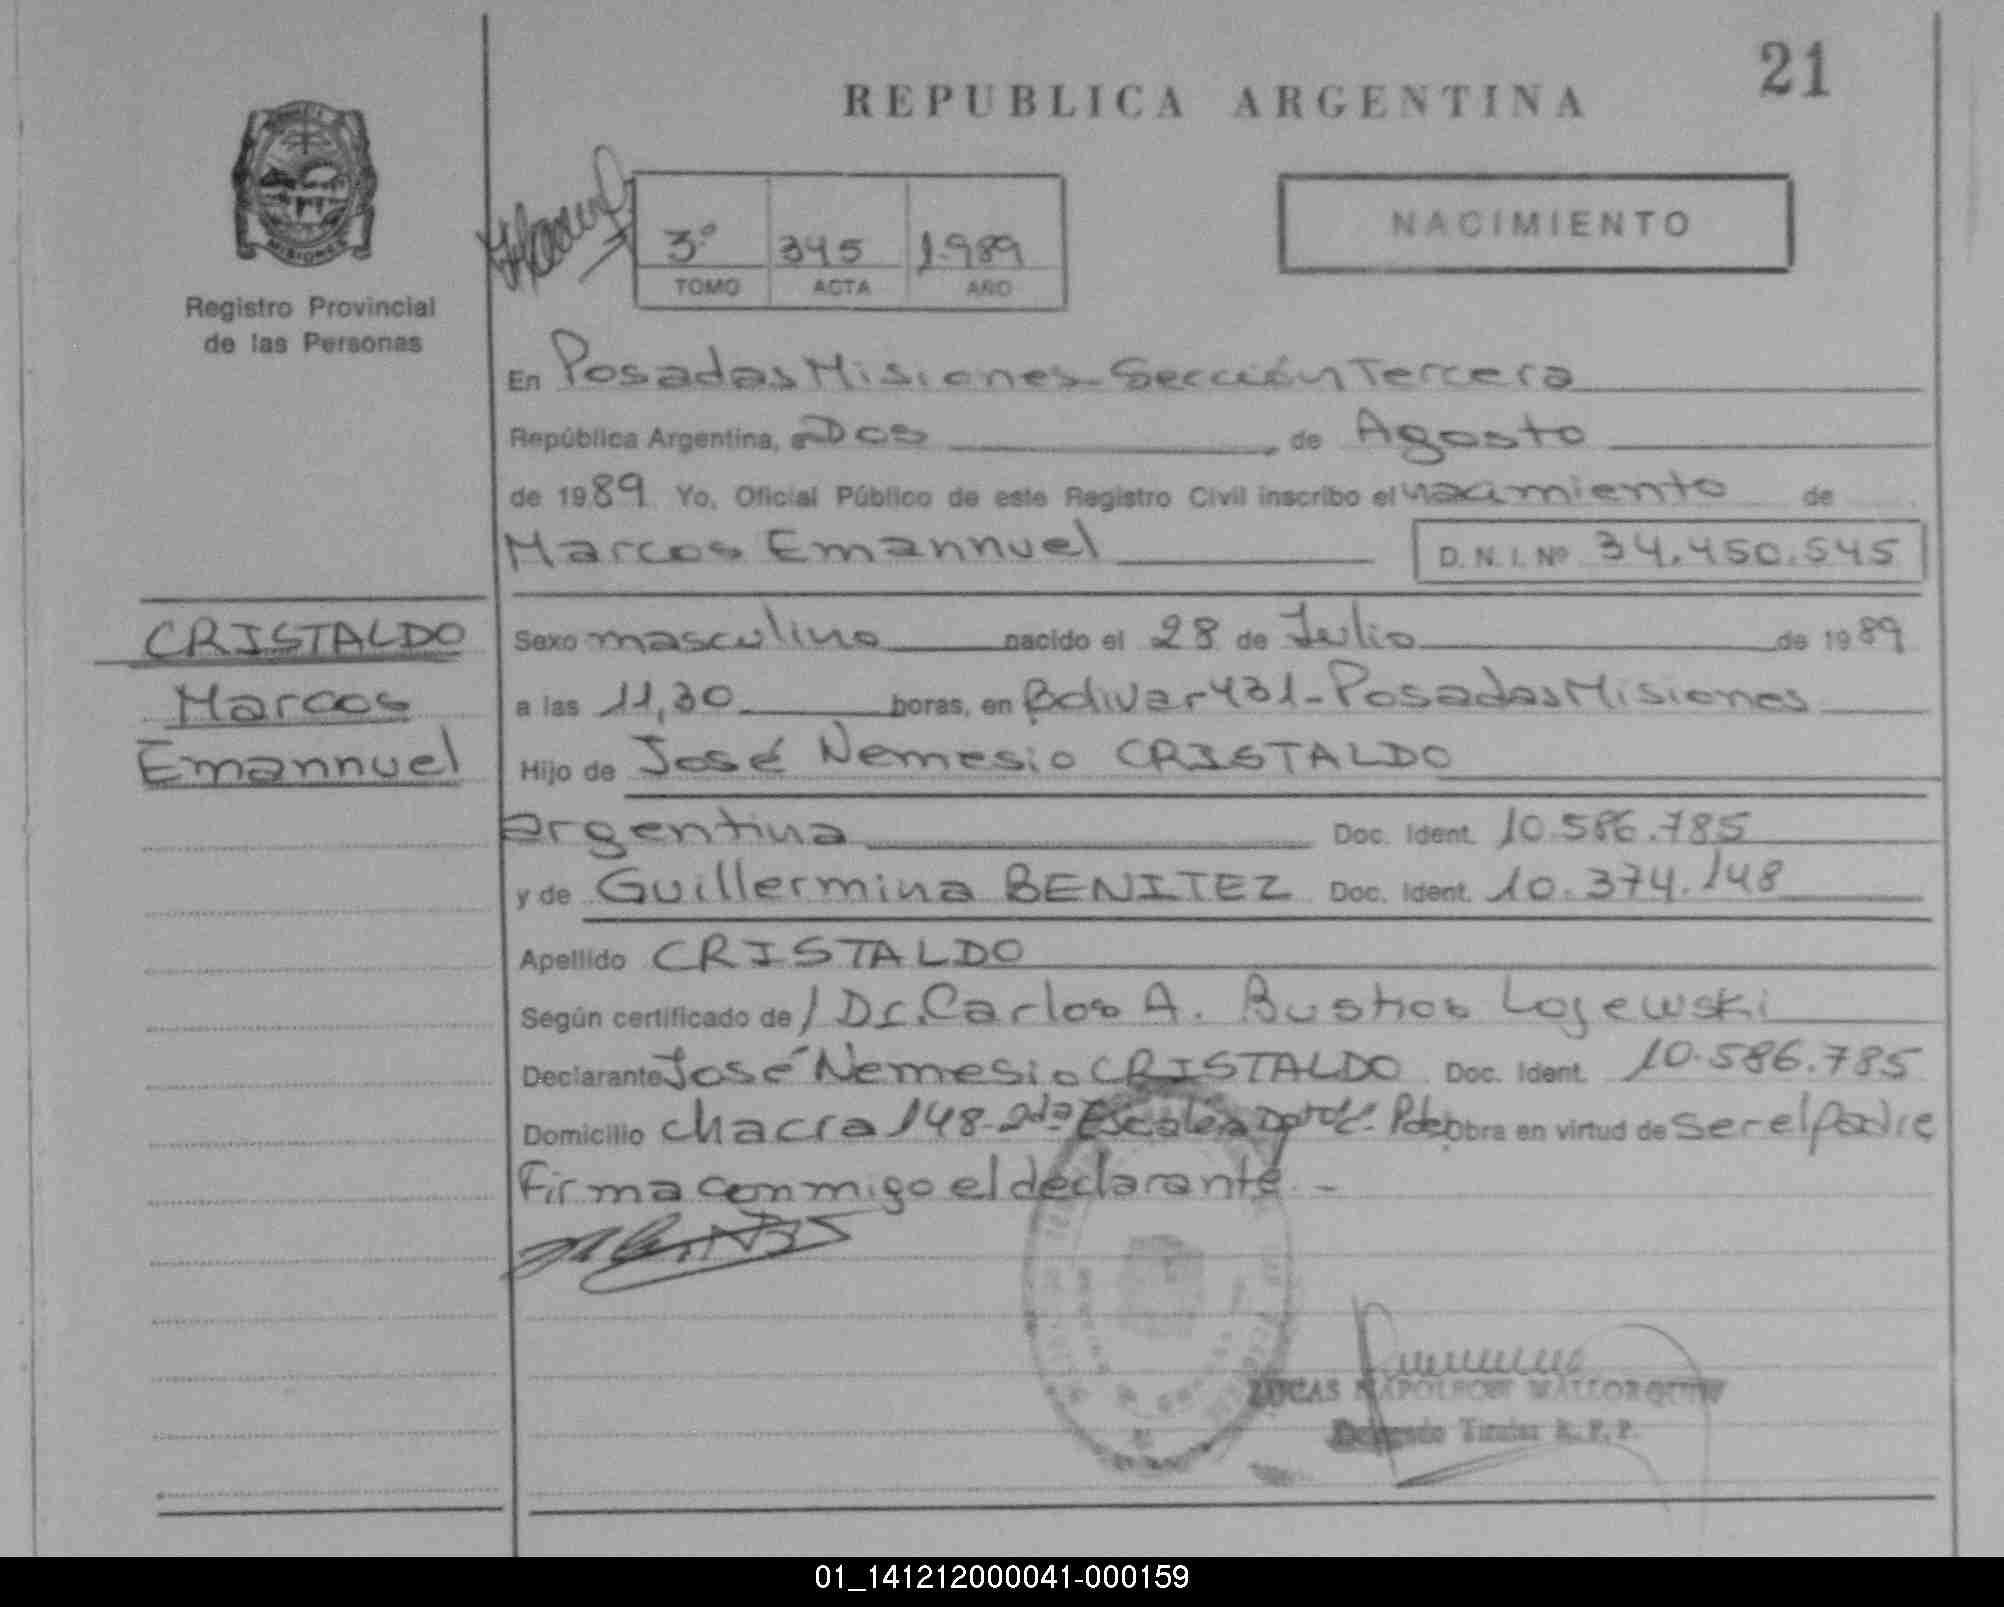 21
REPUBLICA ARGENTINA
MISIONES
Registro Provincial
de las Personas
3º 345 1.989
TOMO ACTA AÑO
NACIMIENTO
En Posadas Misiones - Sección Tercera
República Argentina, a Dos de Agosto
de 1989 Yo, Oficial Público de este Registro Civil inscribo el nacimiento de
Marcos Emannuel D.N.I. Nº 34.450.545
CRISTALDO
Marcos
Emannuel
Sexo masculino nacido el 28 de Julio de 1989
a las 11,30 horas, en Bolivar 431 - Posadas Misiones
Hijo de José Nemesio CRISTALDO
argentina Doc. Ident. 10.586.785
y de Guillermina BENITEZ Doc. Ident. 10.374.148
Apellido CRISTALDO
Según certificado de / Dr. Carlos A. Bustios Lojewski
Declarante José Nemesio CRISTALDO Doc. Ident. 10.586.785
Domicilio chacra 148 - 2da Escalera Obra en virtud de ser el padre
Firma conmigo el declarante. -
LUCAS NAPOLEON MALLORQUIN
Delegado Titular R.P.P.
01_141212000041-000159